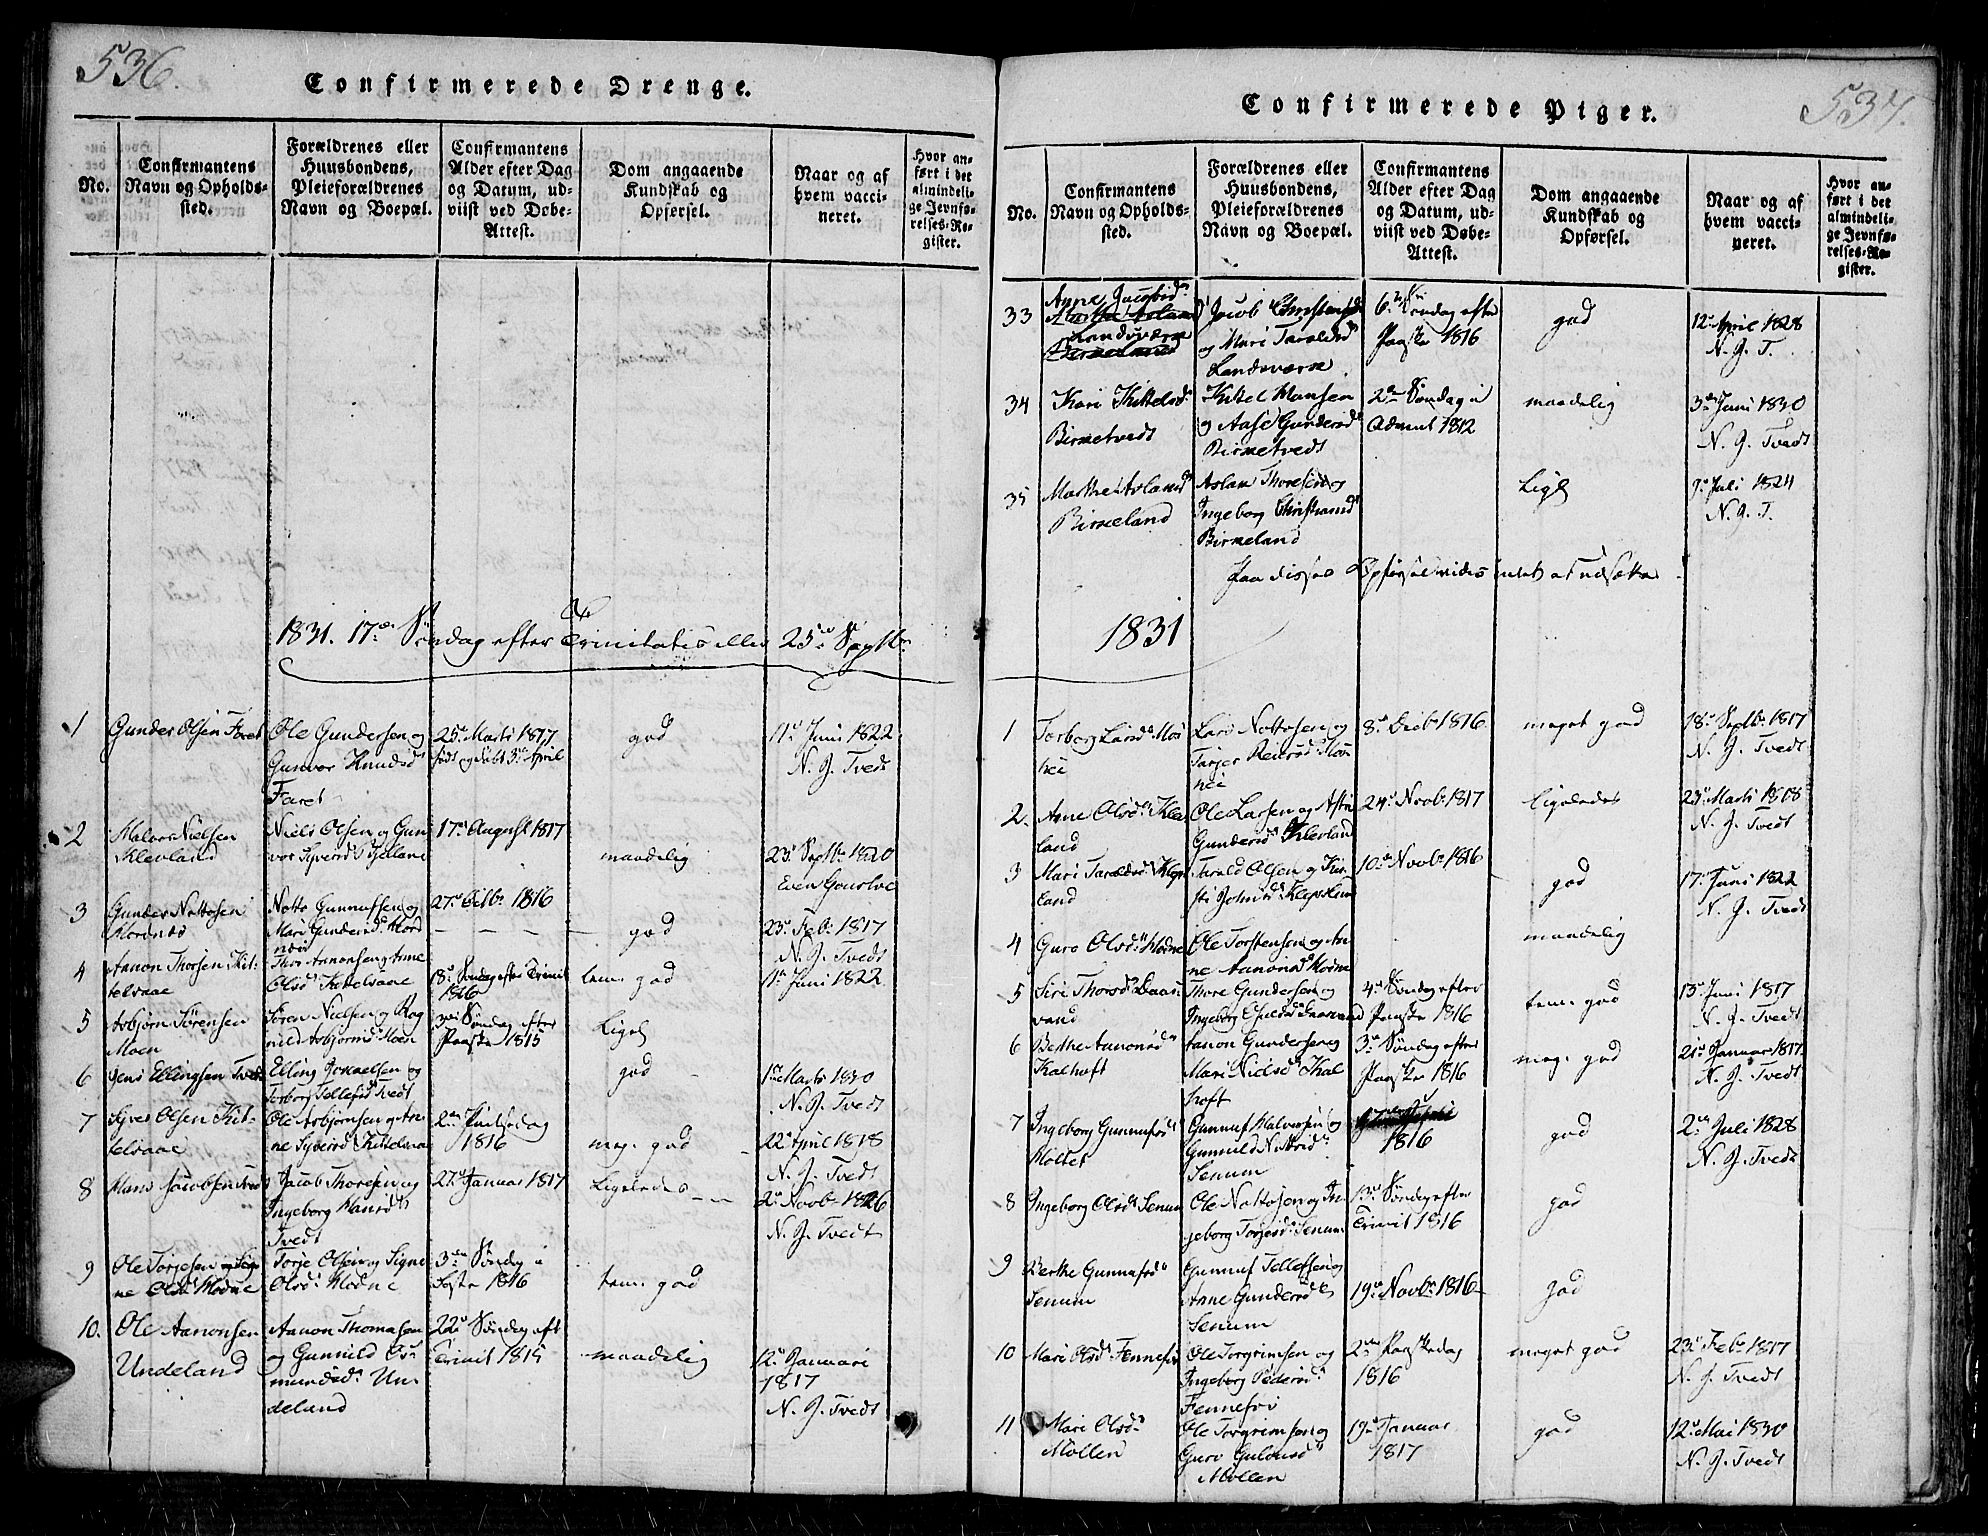 536.
Confirmerede Drenge.
No.
Confirmantens
Navn og Opholds-
sted.
Forældrenes eller
Huusbondens,
Pleieforældrenes
Navn og Boepæl.
Confirmantens
Alder efter Dag
og Datum, ud-
viist ved Døbe-
Attest.
Dom angaaende
Kundskab og
Opførsel.
Naar og af
hvem vacci-
neret.
Hvor an-
ført i det
almindeli-
ge Jevnfø-
relses-Re-
gister.
1831. 17de Søndag efter Trinitatis eller 25de Septbr
1
Gunder Olsen Faret
Ole Gundersen og
Gunvor Knudsd.
Faret
25de Marts 1817
født og døbt 3de April
god
11te Juni 1822
N. J. Tvedt
2
Halvor Nielsen
Klevland
Niels Olsen og Gun
vor Syversd.
17de August 1817
maadelig
23de Septbr 1820
Even
3
Gunder Nottosen
Notto Gunnufsen og
Mari Gundersd.
27de Octbr 1816
god
23de Febr 1817
N. J. Tvedt
4
Aanon Thorsen Kit-
telsaae
Thor Aanonsen og Anne
Olsd. Kittelsaae
18de Søndag efter Trinit
1816
tem. god
11te Juni 1822
5
Asbjørn Sørensen
Moen
Søren Nielsen og Rag
nild Asbjørnsd. Moen
3die Søndag efter
Paaske 1815
Ligel
6
Jens Ellingsen Tvedt
Elling
Torborg Tellefsd. Tvedt
god
1ste Marts 1830
N. J. Tvedt
7
Syver Olsen Kit-
telsaae
Ole Asbjørnsen og An-
ne Syversd. Kittelsaae
2den Pintsedag
1816
meg. god
22de April 1818
N. J. Tvedt
8
Hans Jacobsen Tvedt
Jacob Thorsen og
Ingeborg Hansd.
Tvedt
27de Januar 1817
Ligeledes
2den Novbr 1826
N. J. Tvedt
9
Ole Torjesen
Hodne
Torje Olsen og Signe
Olsd. Hodne
3die Søndag i
Faste 1816
tem. god
10.
Ole Aanonsen
Undeland
Aanon Thomasen
og Gunnild
mundsd. Un-
deland
22de Søndag eft
Trinit 1815
maadelig
12te Januari
1817
N. J. Tvedt
537.
Confirmerede Piger.
No.
Confirmantens
Navn og Opholds-
sted.
Forældrenes eller
Huusbondens,
Pleieforældrenes
Navn og Boepæl.
Confirmantens
Alder efter Dag
og Datum, ud-
viist ved Døbe-
Attest.
Dom angaaende
Kundskab og
Opførsel.
Naar og af
hvem vacci-
neret.
Hvor an-
ført i det
almindeli-
ge Jevnfø-
relses-Re-
gister.
33
Anne Jacobsd.
Landsværk
Birkeland
Jacob Christensen
og Mari Taraldsd.
Landsværk
6te Søndag efter
Paaske 1816
god
12te April 1828
N. J. T.
34
Kari Kittelsd.
Birketvedt
Kittel Hansen
og Aase Gundersd.
Birketvedt
2den Søndag i
Advent 1812
maadelig
3die Juni 1830
N. J. Tvedt
35
Marthe Aslaksd.
Birkeland
Aslak Thoresen og
Ingeborg
Birkeland
Ligel
9de Juli 1824
N. J. T.
Paa disses Opførsel vides intet at udsætte
1831
1
Torborg Larsd.
Lars Nottosen og
Tarjer
8de Decbr 1816
meget god
18de Septbr 1817
N. J. Tvedt
2.
Anne Olsd. Klev
land
Ole Larsen og
Gundersd. Klevland
24de Novbr 1817
Ligeledes
23de Marts 1818
N. J. Tvedt
3
Mari Taraldsd. Kleps
land
Tarald Olsen og Kir-
sti Johnsd. Klepsland
10de Novbr 1816
god
17de Juni 1822
N. J. Tvedt
4
Guro Olsd. Hodne
Ole Torstensen og An-
ne Aanonsd. Hodne
maadelig
5
Siri Thorsd. Daas-
vand
Thore Gundersen og
Ingeborg Daasvand
4de Søndag efter
Paaske 1816
tem. god
13de Juni 1817
N. J. Tvedt
6
Berthe Aanonsd.
Kalhoft
Aanon Gundersen og
Mari Nielsd. Kal
hoft
3die Søndag efter
Paaske 1816
meg. god
21de Januar 1817
N. J. Tvedt
7
Ingeborg Gunnufsd.
Holtet
Gunnuf Halvorsen og
Gunnild Nottosd.
Senum
1816
god
2den Juli 1828
N. J. Tvedt
8
Ingeborg Olsd. Senum
Ole Nottosen og In-
geborg Torjesd. Senum
13de Søndag efter
Trinit 1816
god
9
Berthe Gunnufsd.
Senum
Gunnuf Tellefsen og
Anne Gundersd.
Senum
19de Novbr 1816
god
10
Mari Olsd. Fennefos
Ole Torgrimsen og
Ingeborg Pedersd.
Fennefos
2den Paaskedag
1816
meget god
23de Febr 1817
N. J. Tvedt
11
Mari Olsd.
Mollen
Ole Torgrimsen og
Guro
Mollen
19de Januar
1817
god
12te Mai 1830
N. J. Tvedt